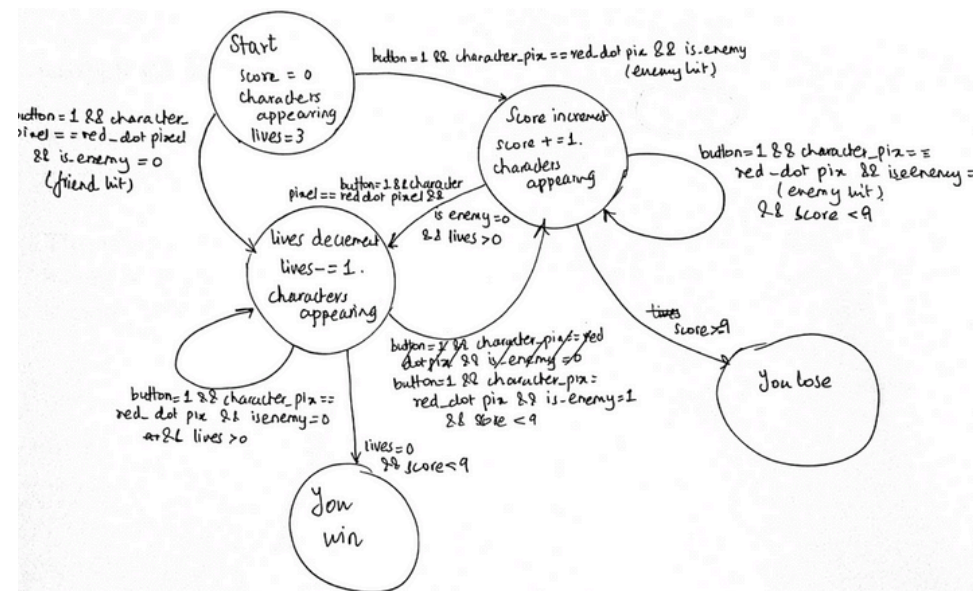 Start
score = 0
characters
appearing
lives=3
button=1 && character_pix == red_dot pix && is_enemy
(enemy hit)
button=1 && character_
pixel == red_dot pixel
&& is_enemy = 0
(friend hit)
Score increment
score +=1.
characters
appearing
button=1 && character_pix==
red_dot pix && iseenemy=
(enemy hit)
&& score <9
button=1 && character
pixel == red dot pixel &&
is enemy=0
&& lives>0
lives decrement
lives-=1.
characters
appearing
button=1 && character_pix==red
dot pix && is_enemy=0
button=1 && character_pix=
red_dot pix && is_enemy=1
&& score <9
lives
score>9
You lose
button=1 && character_pix==
red_dot pix && isenemy=0
&& lives>0
lives=0
&& score<9
You
win